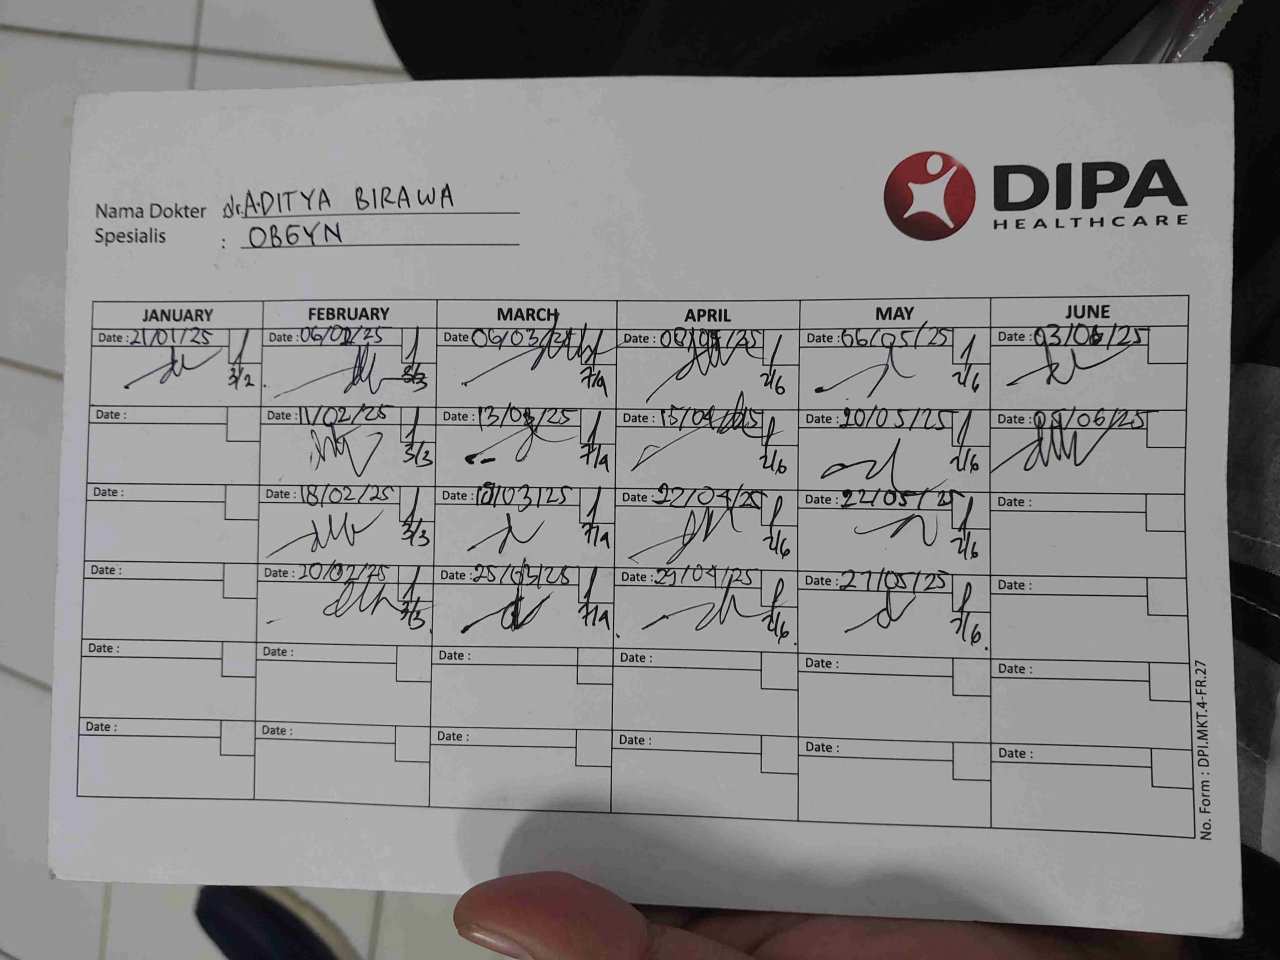 DIPA
HEALTHCARE
Nama Dokter dr. ADITYA BIRAWA
Spesialis : OBGYN
JANUARY FEBRUARY MARCH APRIL MAY JUNE
Date : 21/01/25 Date : 06/02/25 Date 06/03/ Date : 08/04/25 Date : 06/05/25 Date : 03/06/25
3/2 3/3 7/9 2/6 2/6
Date : Date : 11/02/25 Date : 13/03/25 Date : 15/04/25 Date : 20/05/25 Date : /06/25
3/3 7/9 2/6 2/6
Date : Date : 18/02/25 Date : 18/03/25 Date : 22/04/25 Date : 22/05/25 Date :
3/3 7/9 2/6 2/6
Date : Date : 20/02/25 Date : 25/03/25 Date : 29/04/25 Date : 27/05/25 Date :
3/3 7/9 2/6 2/6
Date : Date : Date : Date : Date : Date :
Date : Date : Date : Date : Date : Date :
No. Form : DPI.MKT.4-FR.27